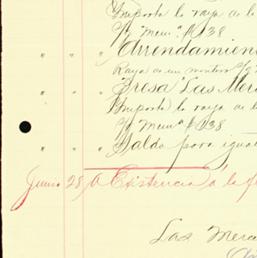 Importe la raya de la
S/ Mem.ª #138
" " " Arrendamien
Raya de un montero
" " " Presa "Las Mer
Importe la raya de l
S/ Mem.ª #138
" " " Saldo para igua
Junio 28 A Existencia a la f
Las Merc